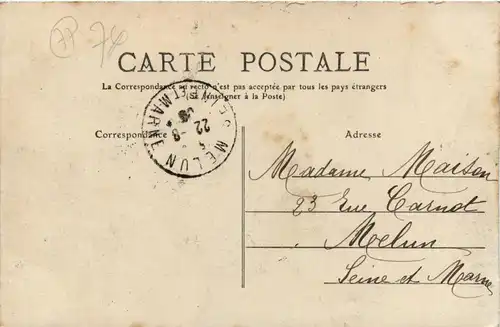 74
CARTE POSTALE
La Correspondance au recto n'est pas acceptée par tous les pays étrangers
(Se renseigner à la Poste)
Correspondance
Adresse
MELUN
ET MARNE
22 -8
Madame Maison
23 Rue Carnot
Melun
Seine et Marne